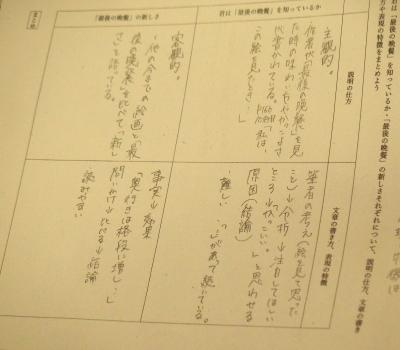 君は「最後の晩餐」を知っているか・「最後の晩餐」の新しさそれぞれについて、説明の仕方、文章の書き
方や表現の特徴をまとめよう
説明の仕方
文章の書き方、表現の特徴
君は「最後の晩餐」を知っているか
主観的。
作者が「最後の晩餐」を見
た時の
書かれている。
「私は、
この絵を見たとき
筆者の考え(絵を見て思った
こと)→分析→注目してほしい
ところ→「かっこいい。」と思わせる
原因(結論)
があって続いている。
「最後の晩餐」の新しさ
客観的。
他の今までの絵画と「最
後の晩餐」を比べて「新し
さ」を語っている。
事実→効果
「奥行きは格段に増し…」
問いかけ→比べる→結論
読みやすい
まとめ